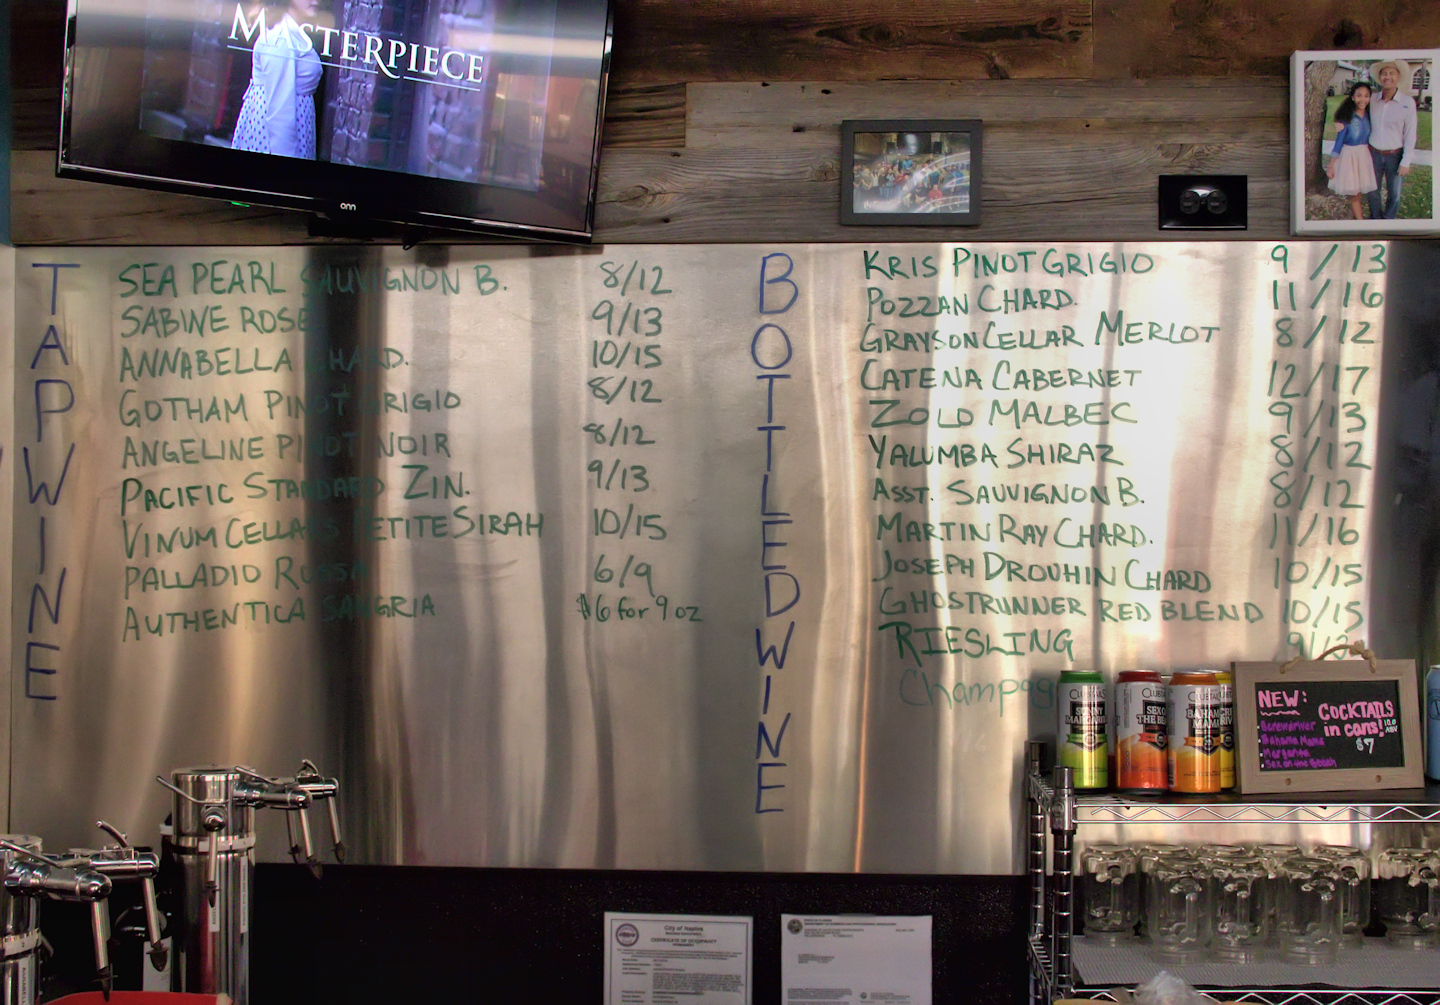 MASTERPIECE
onn
TAP WINE
SEA PEARL SAUVIGNON B. 8/12
SABINE ROSE 9/13
ANNABELLA CHARD. 10/15
GOTHAM PINOT GRIGIO 8/12
ANGELINE PINOT NOIR 8/12
PACIFIC STANDARD ZIN. 9/13
VINUM CELLARS PETITE SIRAH 10/15
PALLADIO ROSSA 6/9
AUTHENTICA SANGRIA $6 for 9 oz
BOTTLED WINE
KRIS PINOT GRIGIO 9/13
POZZAN CHARD. 11/16
GRAYSON CELLAR MERLOT 8/12
CATENA CABERNET 12/17
ZOLO MALBEC 9/13
YALUMBA SHIRAZ 8/12
ASST. SAUVIGNON B. 8/12
MARTIN RAY CHARD. 11/16
JOSEPH DROUHIN CHARD 10/15
GHOSTRUNNER RED BLEND 10/15
RIESLING
Champag
NEW:
COCKTAILS
in cans! 10.0 ABV
$7
Screwdriver
Bahama Mama
Margarita
Sex on the Beach
City of Naples
CERTIFICATE OF OCCUPANCY